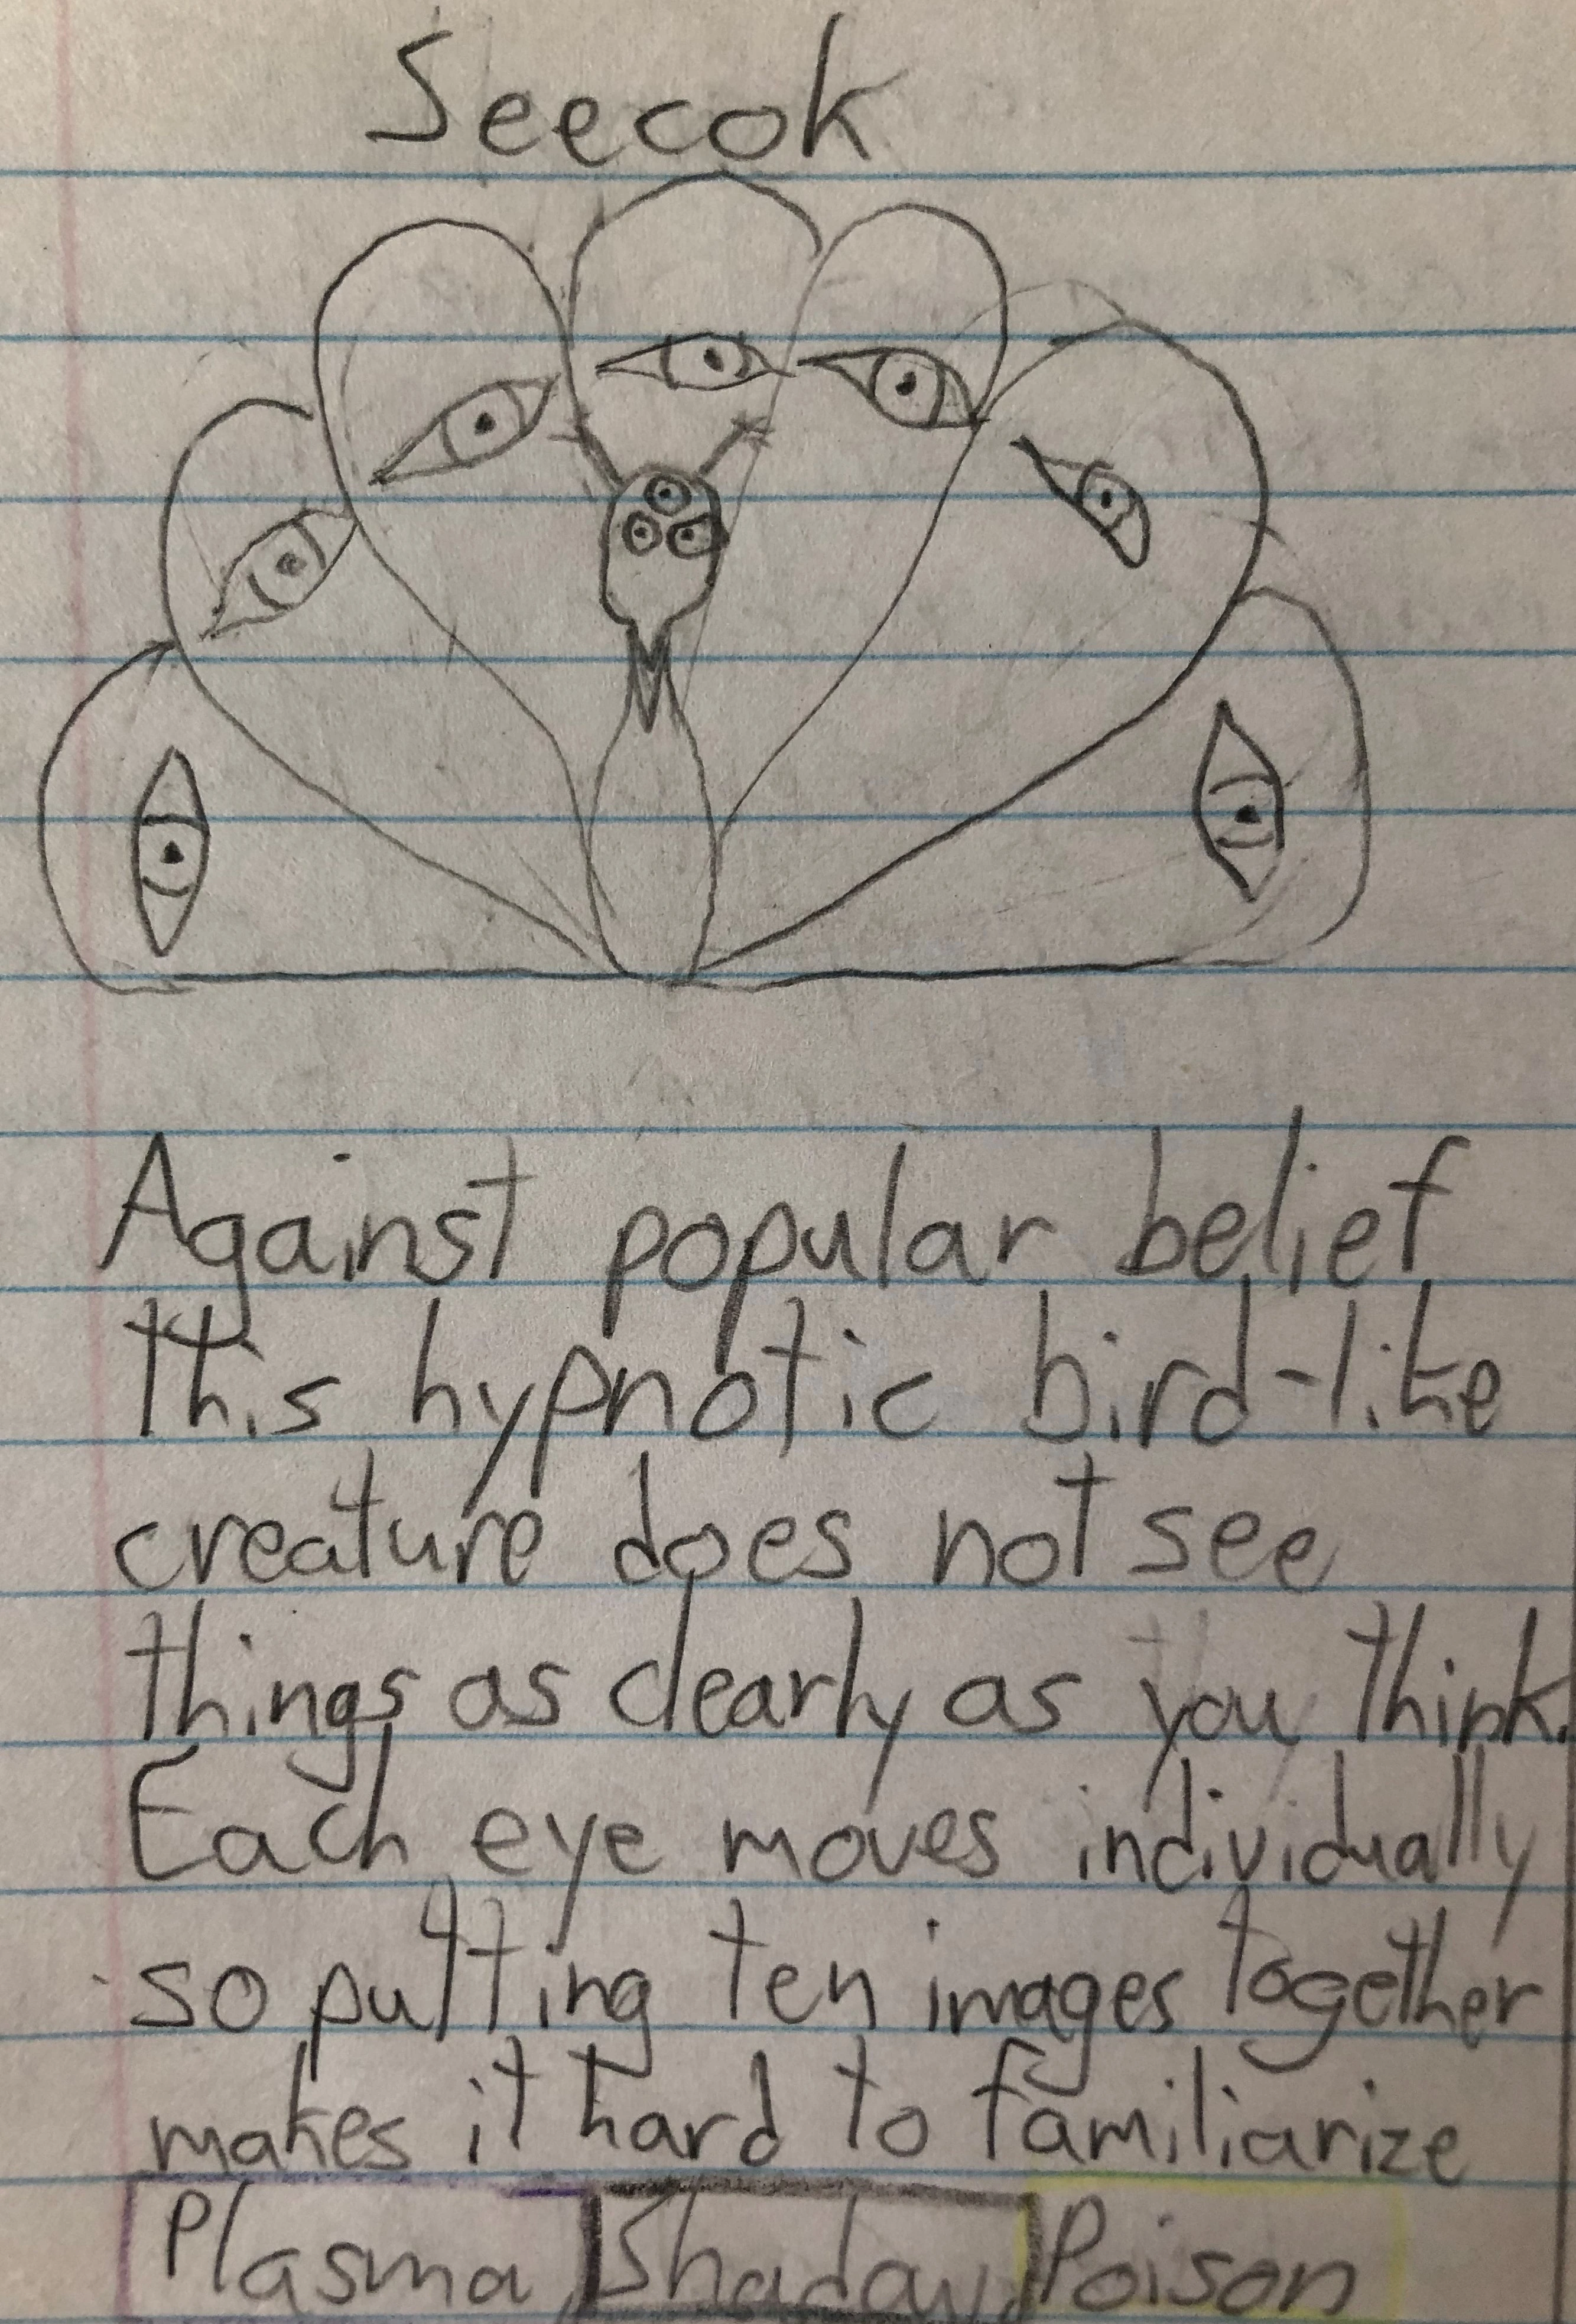 Seecok
Against popular belief
this hypnotic bird-like
creature does not see
things as clearly as you think.
Each eye moves individually
so putting ten images together
makes it hard to familiarize
Plasma Shadow Poison